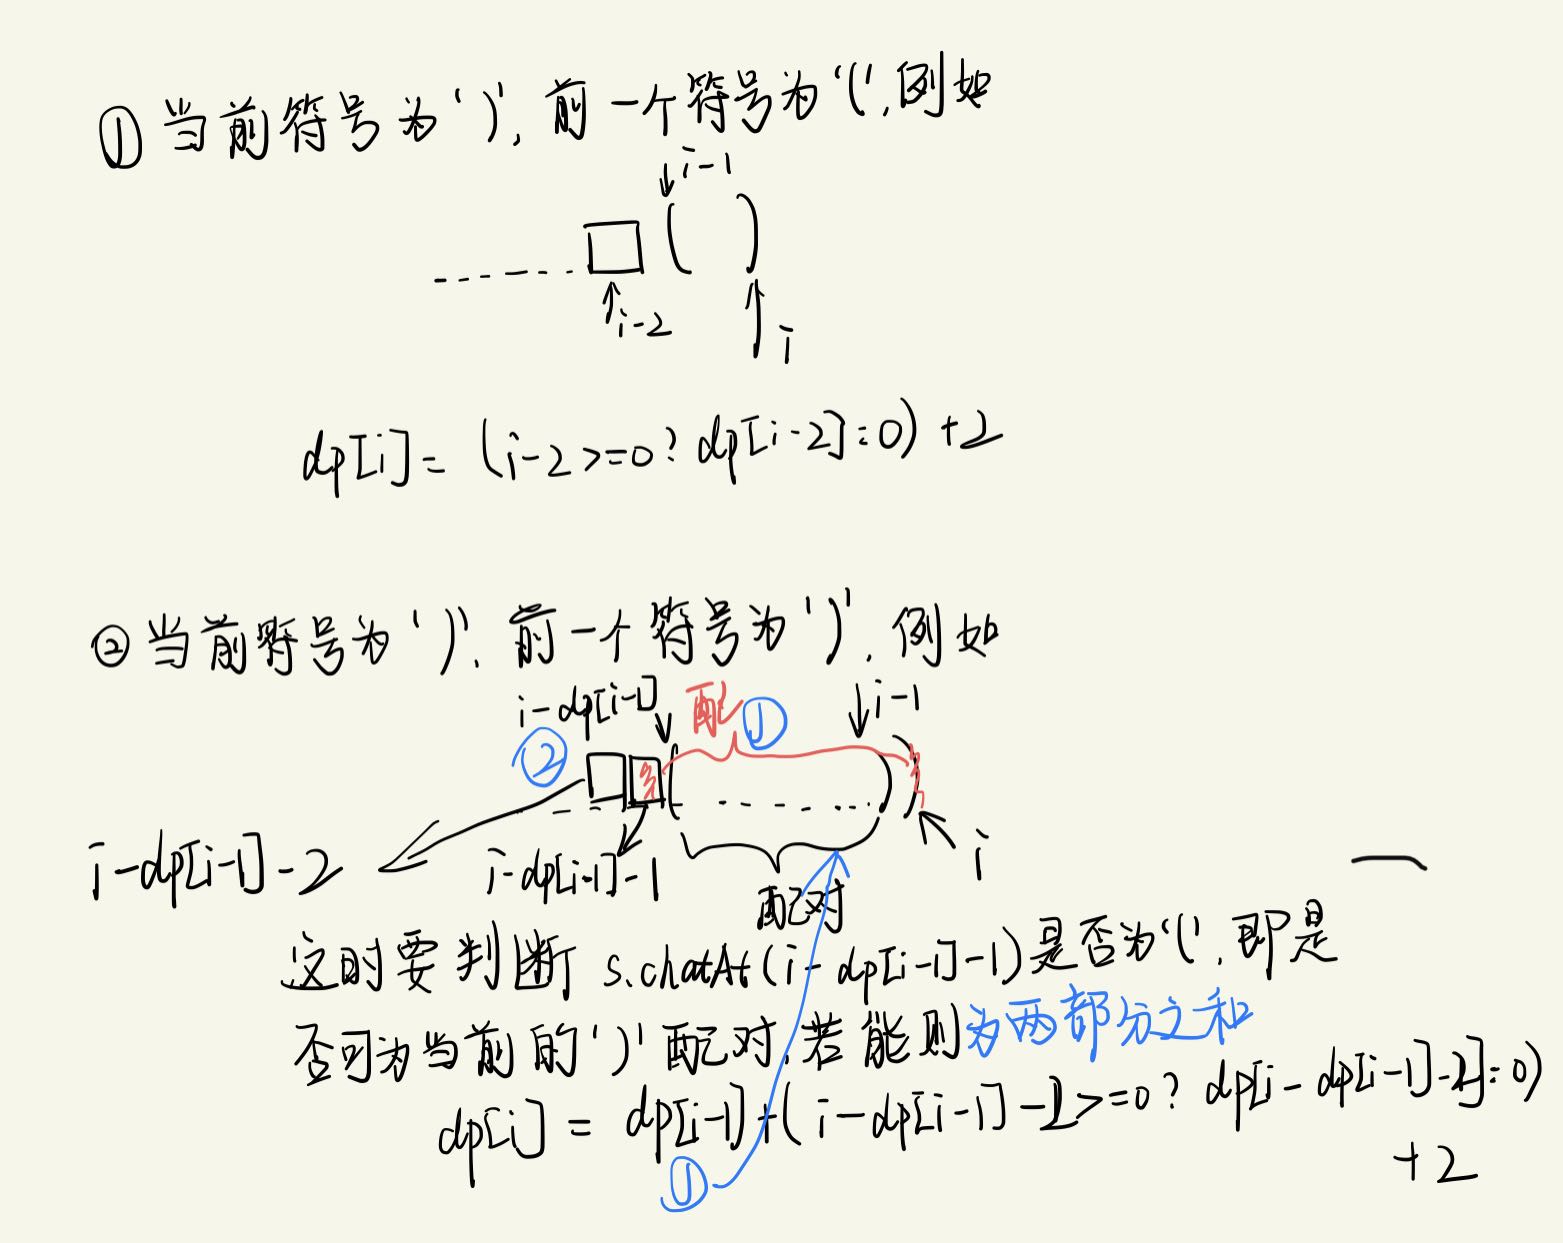 ① 当前符号为')', 前一个符号为'(', 例如
i-1
( )
i-2
i
dp[i] = (i-2>=0? dp[i-2]:0) +2
② 当前符号为')', 前一个符号为')', 例如
i-dp[i-1] 配 ① i-1
② ( ) )
i-dp[i-1]-2 i-dp[i-1]-1 i
配对
这时要判断 s.chatAt(i-dp[i-1]-1)是否为'(', 即是
否可为当前的')'配对, 若能则为两部分之和
dp[i] = dp[i-1]+(i-dp[i-1]-2>=0? dp[i-dp[i-1]-2]:0)
+2
①